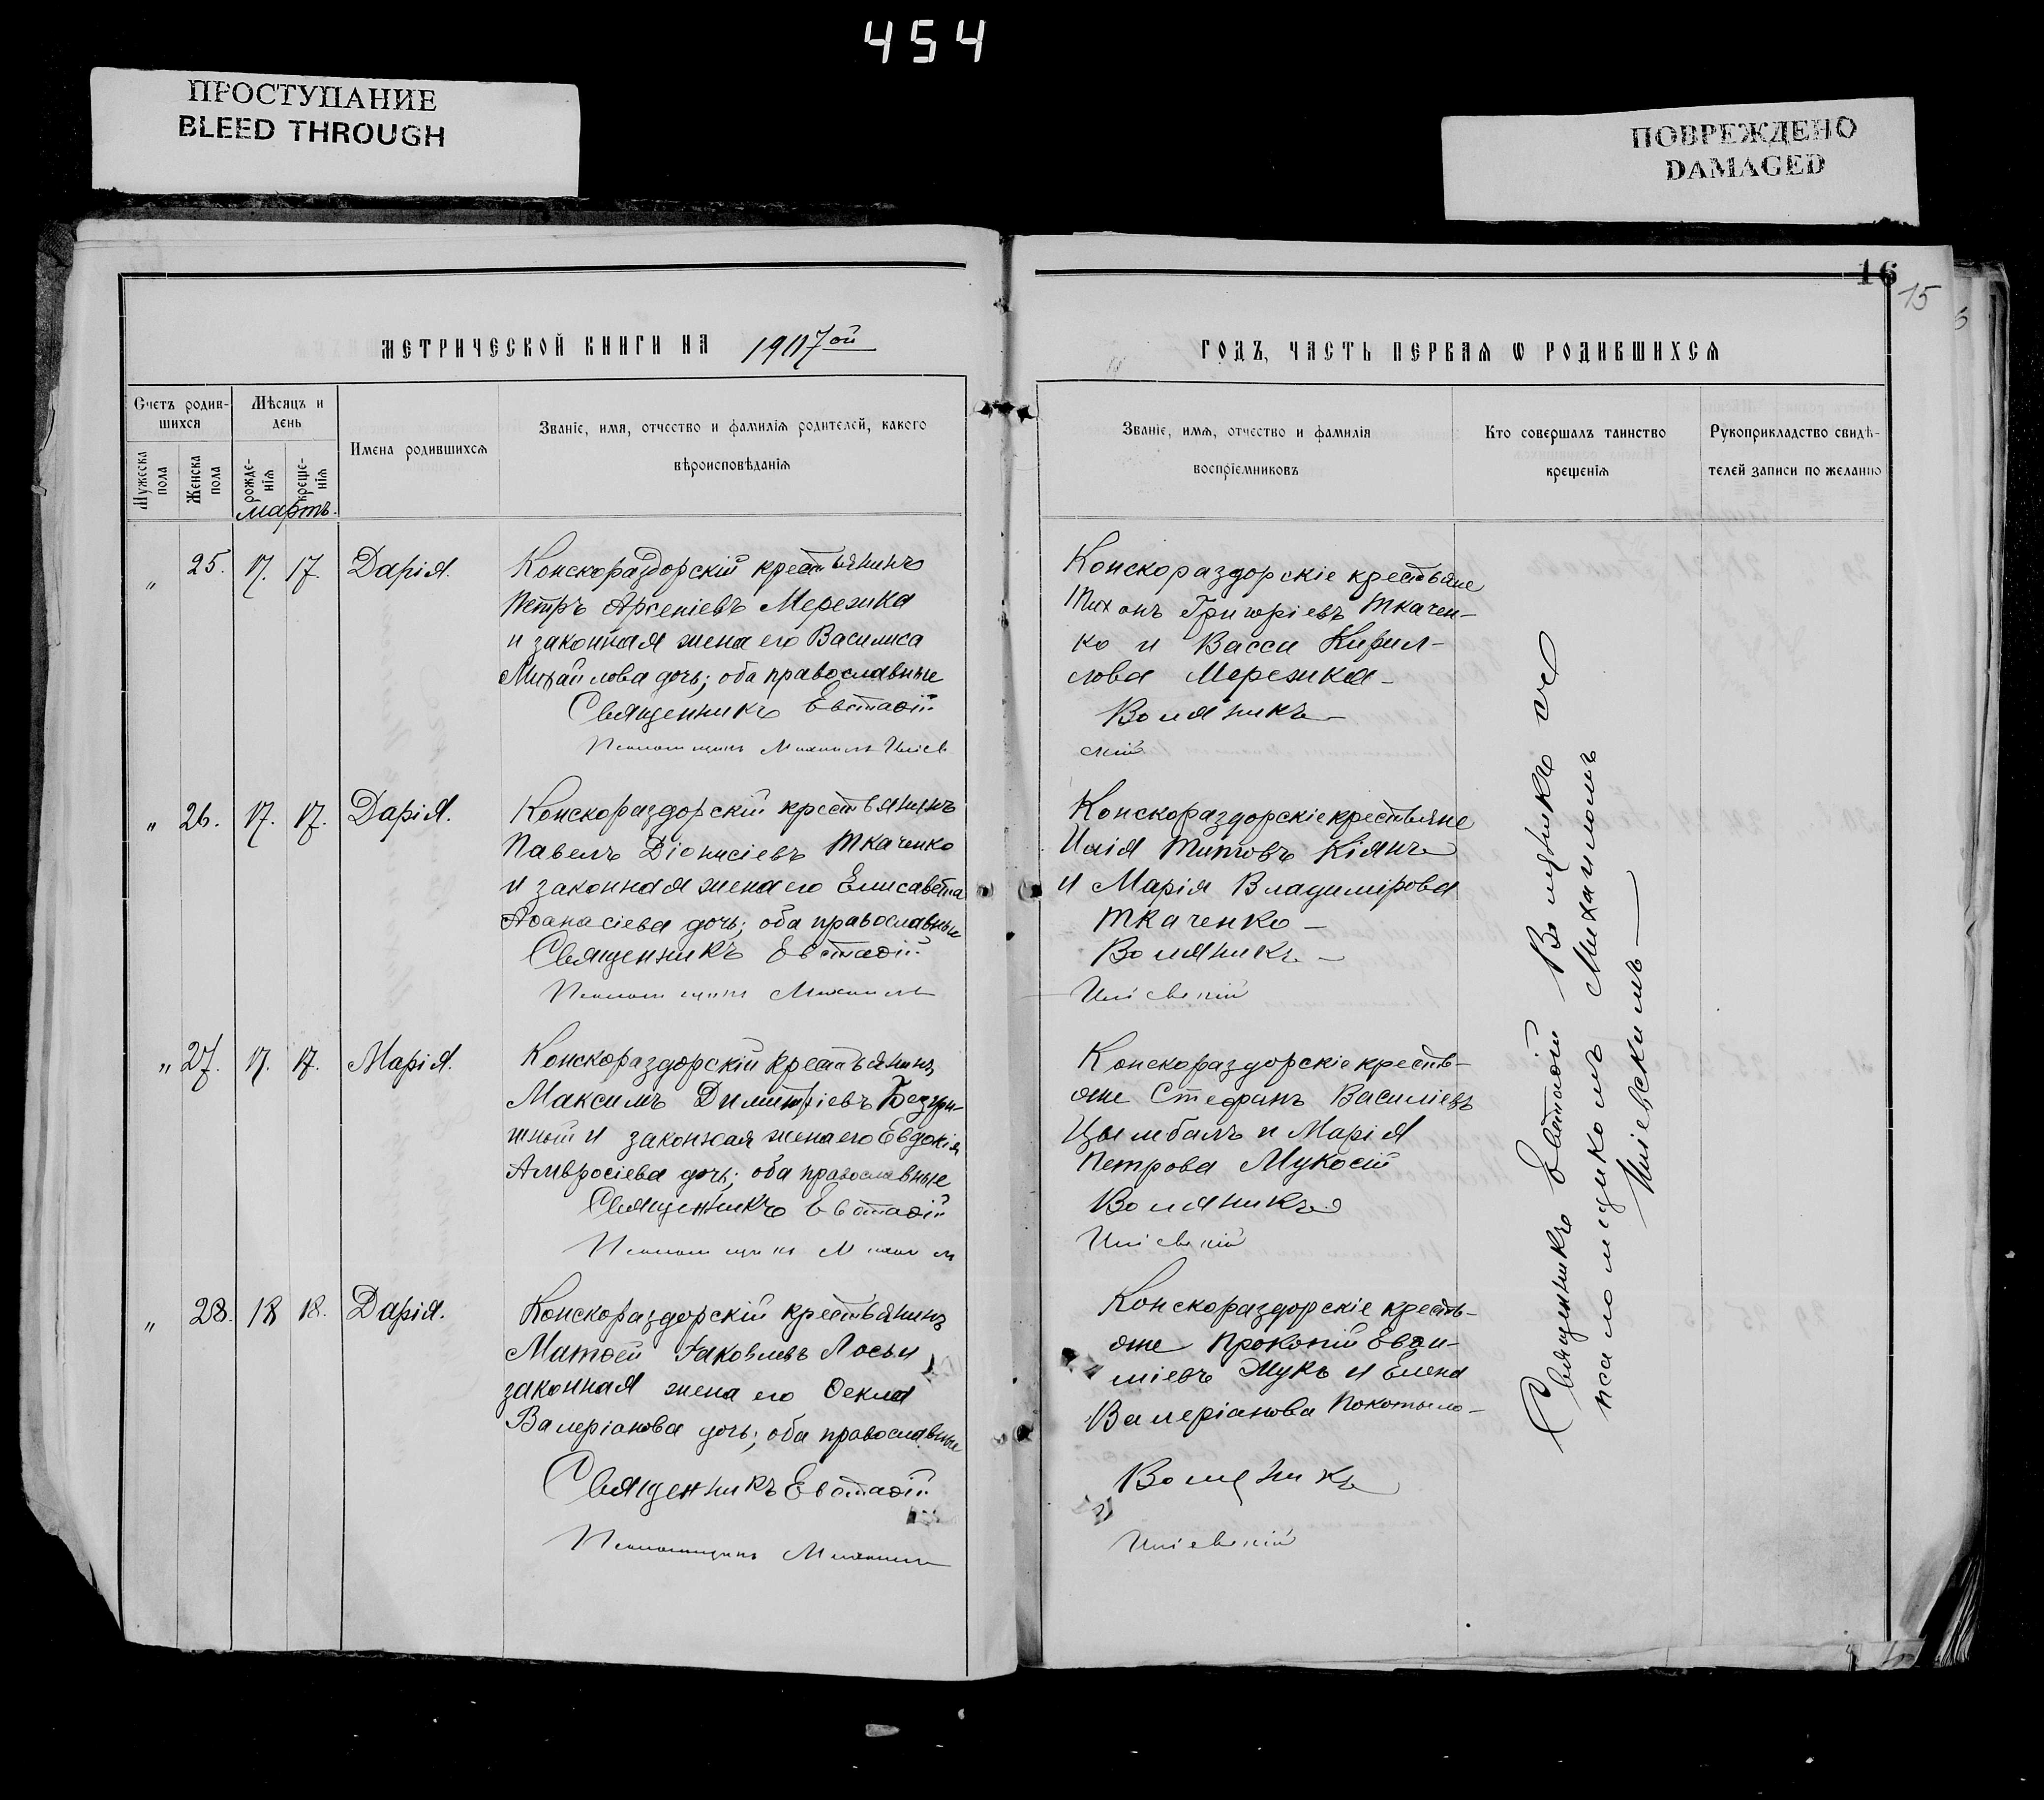 454
ПРОСТУПАНИЕ
BLEED THROUGH
ПОВРЕЖДЕНО
DAMAGED
16
15
МЕТРИЧЕСКОЙ КНИГИ НА 1917ой
ГОДЪ, ЧАСТЬ ПЕРВАЯ Ѡ РОДИВШИХСЯ
Счетъ родив-
шихся
Мужеска пола
Женска пола
Мѣсяцъ и
день
рожде-
нія
креще-
нія
Имена родившихся
Званіе, имя, отчество и фамилія родителей, какого
вѣроисповѣданія
Званіе, имя, отчество и фамилія
воспріемниковъ
Кто совершалъ таинство
крещенія
Рукоприкладство свидѣ-
телей записи по желанію
мартъ.
" 25. 17. 17. Дарія.
Конскораздорскій крестьянинъ
Петръ Арсеніевъ Мережка
и законная жена его Василиса
Михайлова дочь; оба православные
Священникъ Евстаѳій
Псаломщикъ Михаилъ Иліев
Конскораздорскіе крестьяне
Тихонъ Григоріевъ Ткачен-
ко и Васса Кирил-
лова Мережка
Воляникъ
скій
" 26. 17. 17. Дарія.
Конскораздорскій крестьянинъ
Павелъ Діонисіевъ Ткаченко
и законная жена его Елисавета
Аѳанасіева дочь; оба православные
Священникъ Евстаѳій
Псаломщикъ Михаилъ
Конскораздорскіе крестьяне
Илія Титовъ Кіянъ
и Марія Владимірова
Ткаченко
Воляникъ
Иліевскій
" 27. 17. 17. Марія.
Конскораздорскій крестьянинъ
Максимъ Димитріевъ
и законная жена его Евдокія
Амвросіева дочь; оба православные
Священникъ Евстаѳій
Псаломщикъ Михаил
Конскораздорскіе кресть-
яне Стефанъ Василіевъ
Цымбалъ и Марія
Петрова Мукосій
Воляникъ
Иліевскій
" 28. 18 18. Дарія.
Конскораздорскій крестьянинъ
Матѳей Іаковлевъ Лось и
законная жена его Ѳекла
Валеріанова дочь; оба православные
Священникъ Евстаѳій
Псаломщикъ Михаилъ
Конскораздорскіе кресть-
яне Прокопій Евѳи-
міевъ Жукъ и Елена
Валеріанова Покотыло
Воляникъ
Иліевскій
Священникъ Евстаѳій Воляникъ съ
псаломщикомъ Михаиломъ
Иліевскимъ